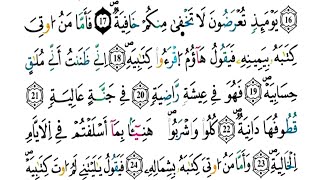 ⑯ يَوْمَئِذٍ تُعْرَضُونَ لَا تَخْفَىٰ مِنكُمْ خَافِيَةٌ ⑰ فَأَمَّا مَنْ أُوتِىَ
كِتَٰبَهُۥ بِيَمِينِهِۦ فَيَقُولُ هَآؤُمُ ٱقْرَءُوا۟ كِتَٰبِيَهْ ⑱ إِنِّى ظَنَنتُ أَنِّى مُلَٰقٍ
حِسَابِيَهْ ⑲ فَهُوَ فِى عِيشَةٍ رَّاضِيَةٍ ⑳ فِى جَنَّةٍ عَالِيَةٍ ㉑
قُطُوفُهَا دَانِيَةٌ ㉒ كُلُوا۟ وَٱشْرَبُوا۟ هَنِيٓـًٔۢا بِمَآ أَسْلَفْتُمْ فِى ٱلْأَيَّامِ
ٱلْخَالِيَةِ ㉓ وَأَمَّا مَنْ أُوتِىَ كِتَٰبَهُۥ بِشِمَالِهِۦ فَيَقُولُ يَٰلَيْتَنِى لَمْ أُوتَ كِتَٰبِيَهْ ㉔